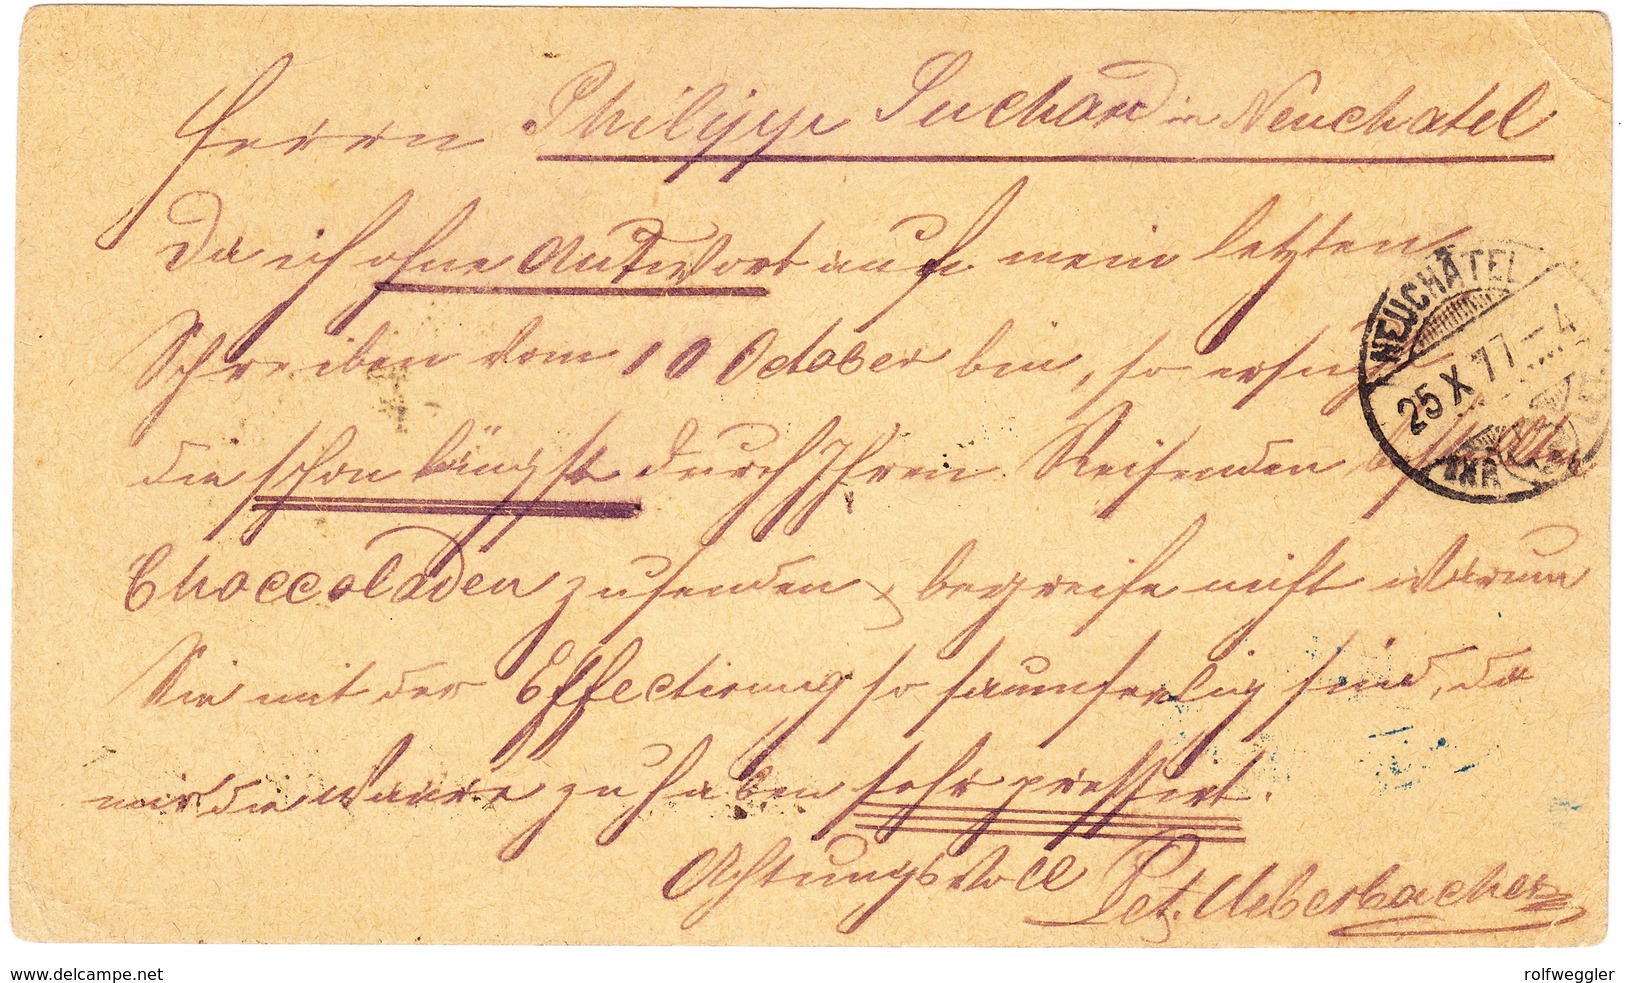 Herrn Philipp Suchard in Neuchatel
Da ich ohne Antwort auf mein letzten
Schreiben vom 10 October bin, so ersuche
die schon längst durch Ihren Reisenden bestellten
Choccoladen zusenden, begreife nicht warum
Sie mit der Effectirung so saumselig sind, da
mir die Waare zu haben sehr pressirt.
Achtungsvoll Pet. Ueberbacher
NEUCHÂTEL
25 X 77 - 4
www.delcampe.net
rolfweggler